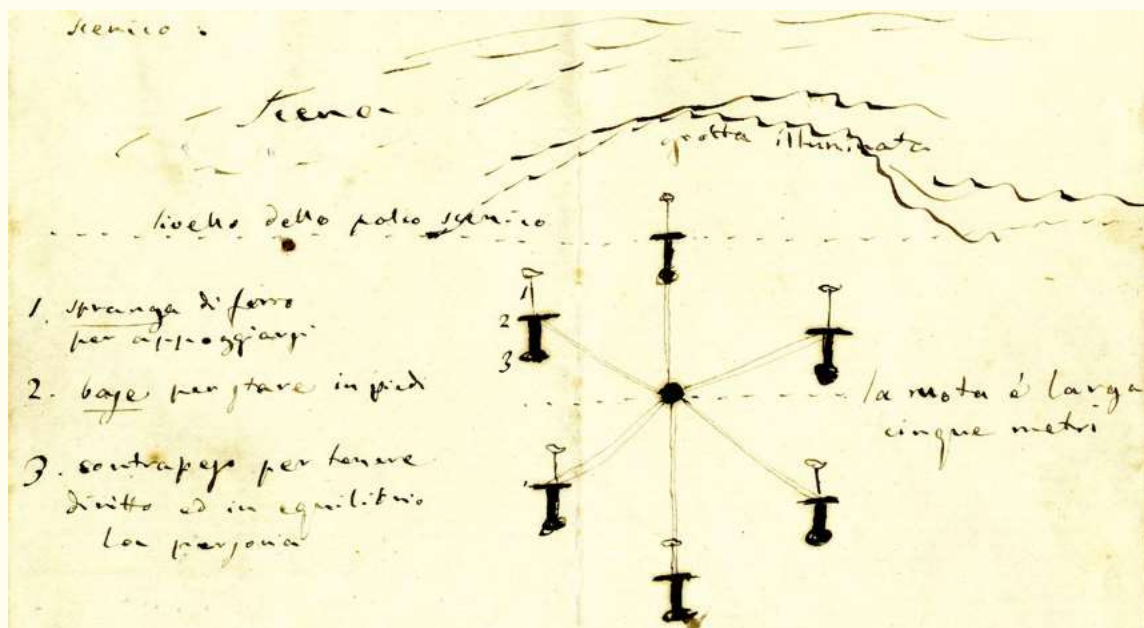 scenico :
Scena
grotta illuminata
livello dello palco scenico
1. spranga di ferro
per appoggiarsi
2. base per stare in piedi
3. contrapeso per tenere
diritto ed in equilibrio
la persona
1
2
3
la ruota é larga
cinque metri